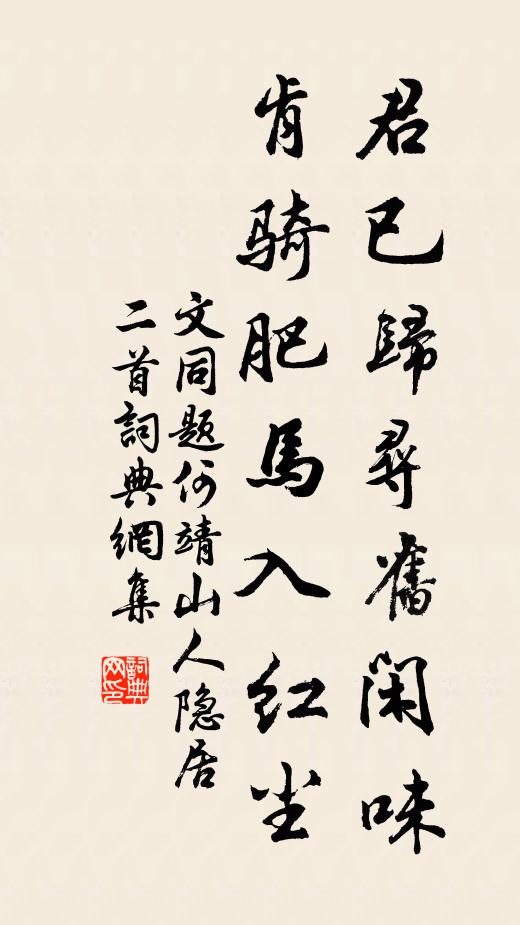 君已歸尋舊閑味
肯騎肥馬入红尘
文同题何靖山人隐居
二首詞典網集
詞典
网印